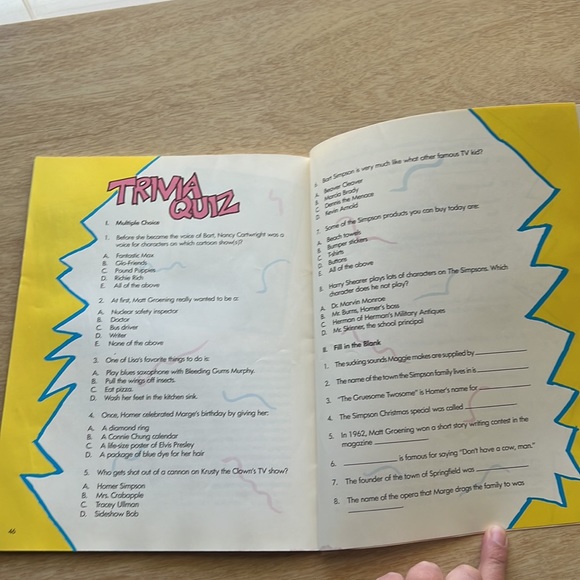 TRIVIA
QUIZ
I. Multiple Choice
1. Before she became the voice of Bart, Nancy Cartwright was a
voice for characters on which cartoon show(s)?
A. Fantastic Max
B. Glo-Friends
C. Pound Puppies
D. Richie Rich
E. All of the above
2. At first, Matt Groening really wanted to be a:
A. Nuclear safety inspector
B. Doctor
C. Bus driver
D. Writer
E. None of the above
3. One of Lisa's favorite things to do is:
A. Play blues saxophone with Bleeding Gums Murphy.
B. Pull the wings off insects.
C. Eat pizza.
D. Wash her feet in the kitchen sink.
4. Once, Homer celebrated Marge's birthday by giving her:
A. A diamond ring
B. A Connie Chung calendar
C. A life-size poster of Elvis Presley
D. A package of blue dye for her hair
5. Who gets shot out of a cannon on Krusty the Clown's TV show?
A. Homer Simpson
B. Mrs. Crabapple
C. Tracey Ullman
D. Sideshow Bob
46
6. Bart Simpson is very much like what other famous TV kid?
A. Beaver Cleaver
B. Marcia Brady
C. Dennis the Menace
D. Kevin Arnold
7. Some of the Simpson products you can buy today are:
A. Beach towels
B. Bumper stickers
C. T-shirts
D. Buttons
E. All of the above
8. Harry Shearer plays lots of characters on The Simpsons. Which
character does he not play?
A. Dr. Marvin Monroe
B. Mr. Burns, Homer's boss
C. Herman of Herman's Military Antiques
D. Mr. Skinner, the school principal
II. Fill in the Blank
1. The sucking sounds Maggie makes are supplied by
2. The name of the town the Simpson family lives in is
3. "The Gruesome Twosome" is Homer's name for
4. The Simpson Christmas special was called
5. In 1962, Matt Groening won a short story writing contest in the
magazine
6. is famous for saying "Don't have a cow, man."
7. The founder of the town of Springfield was
8. The name of the opera that Marge drags the family to was